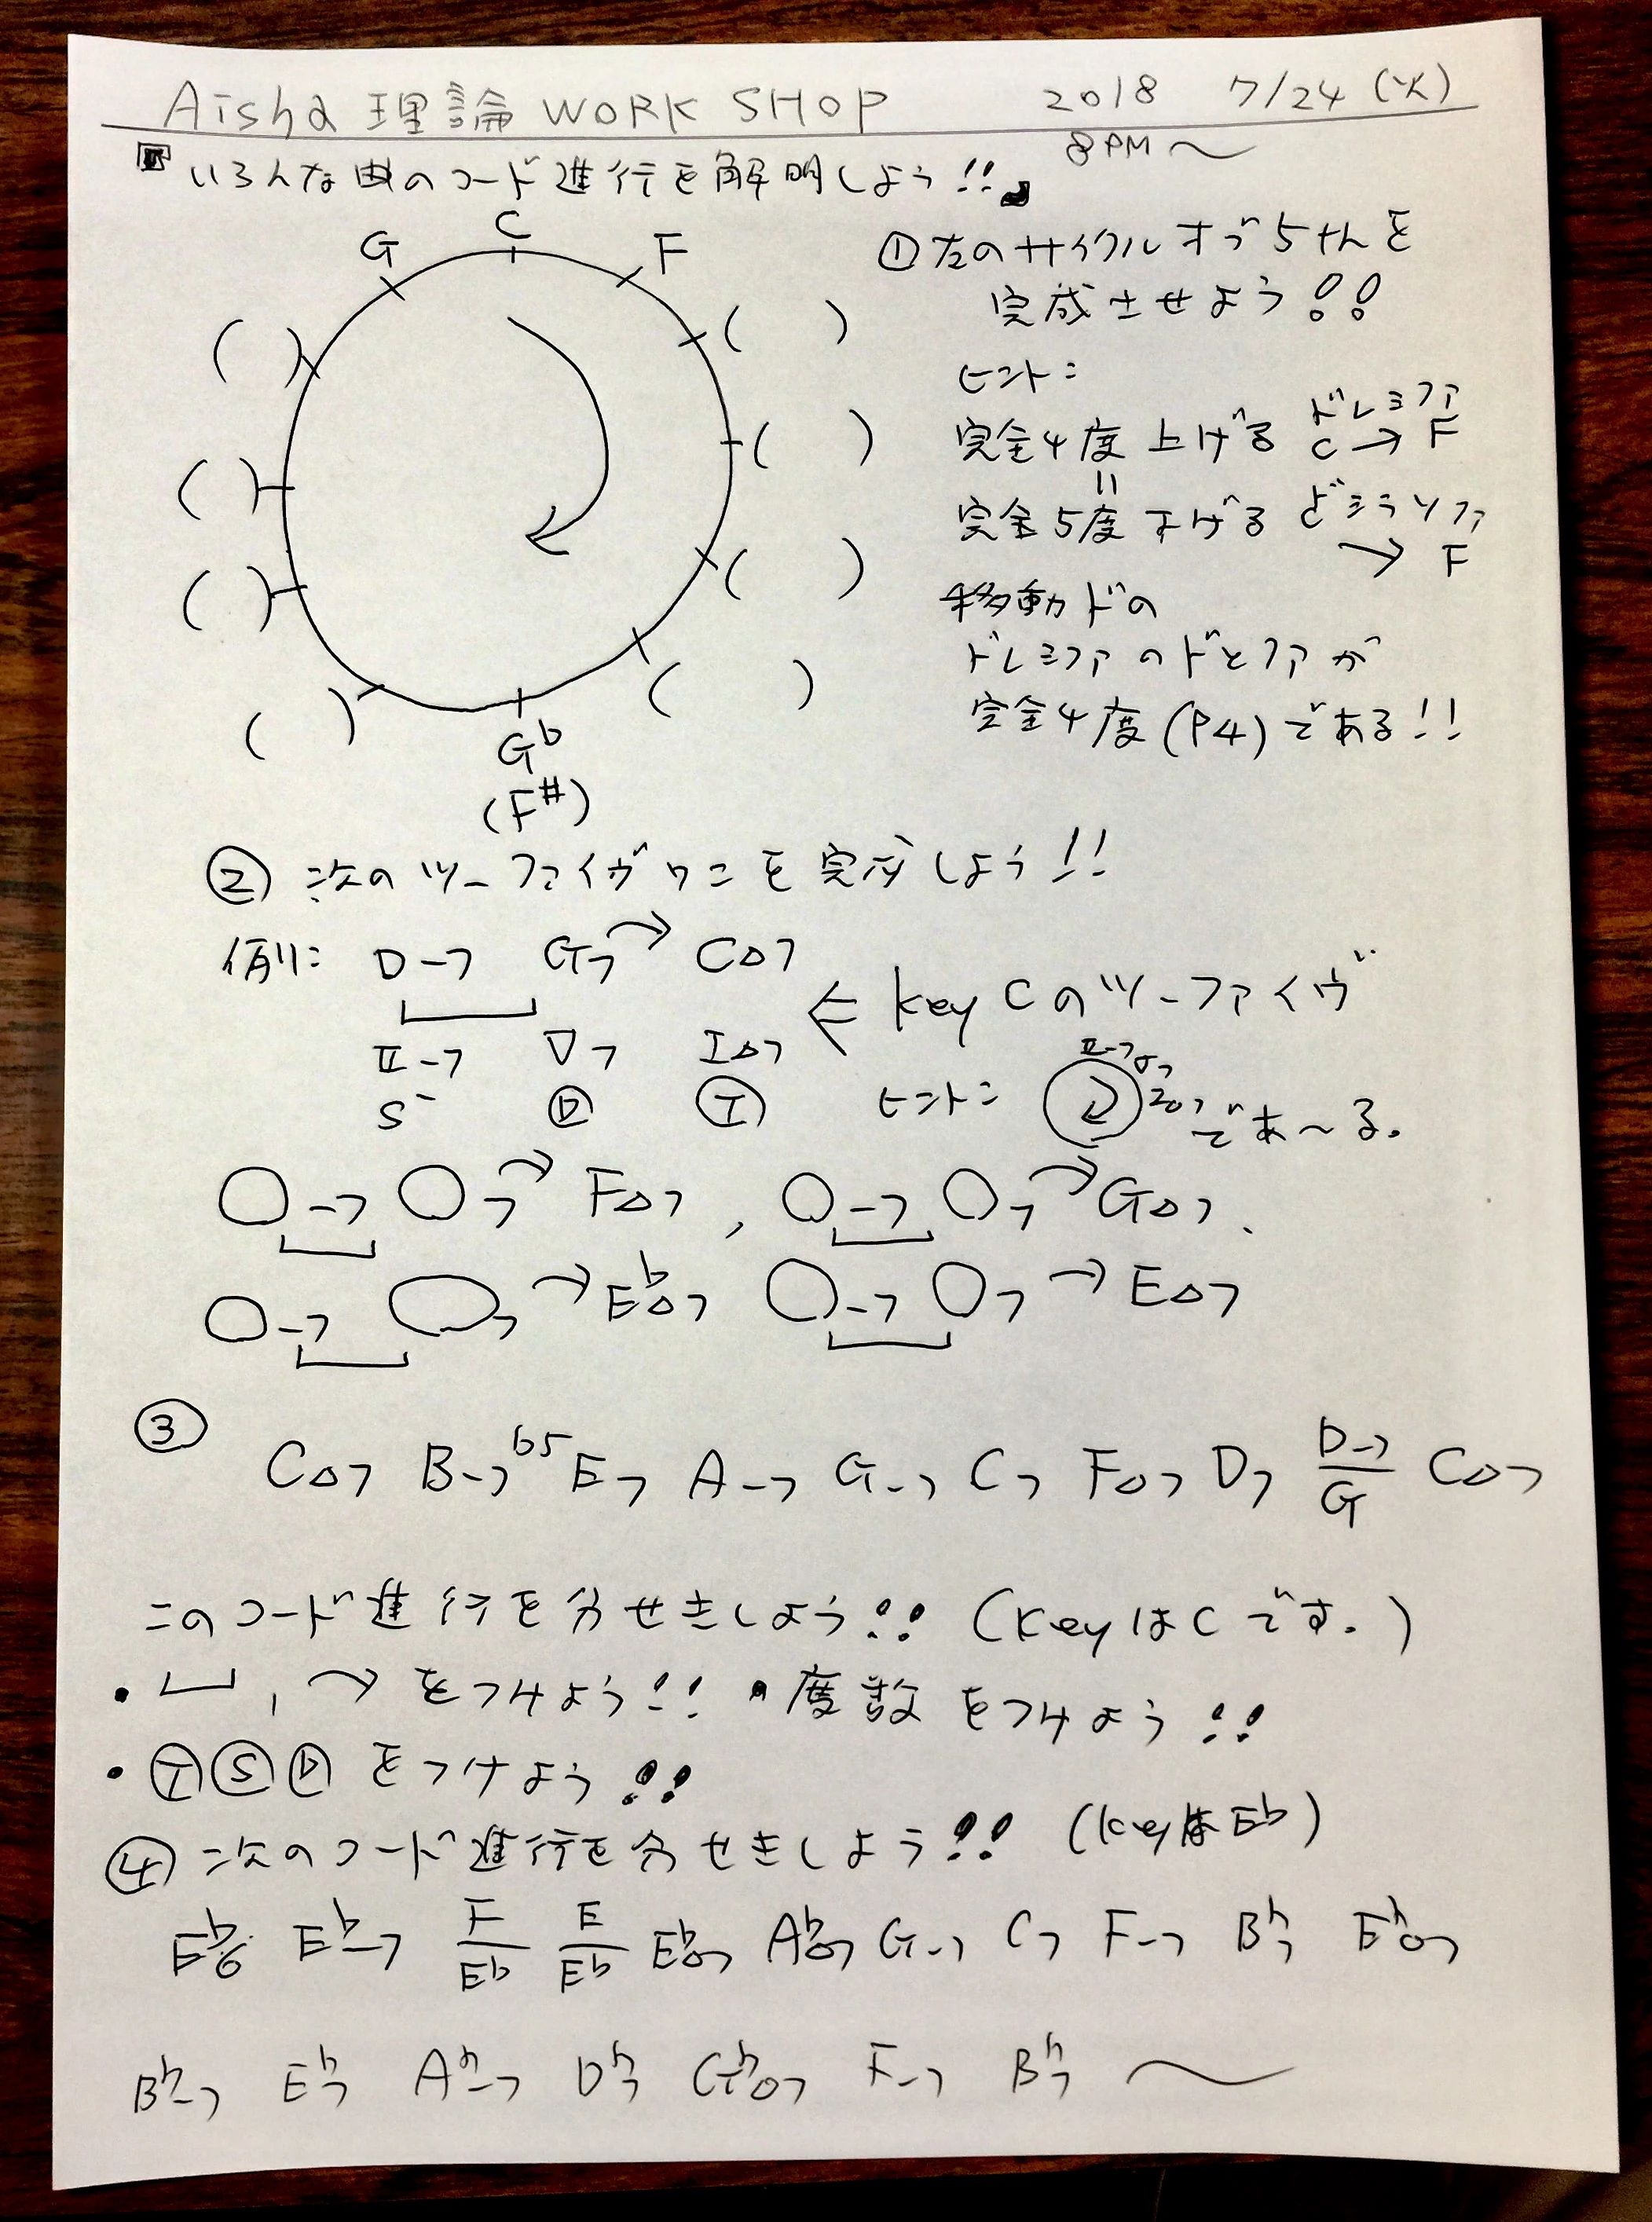 Aisha 理論 WORK SHOP 2018 7/24 (火)
8PM〜
『いろんな曲のコード進行を解明しよう!!』
C
G F
( ) ( )
( ) ( )
( ) ( )
( ) ( )
G♭
(F#)
①左のサイクルオブ5thを
完成させよう!!
ヒント:
ドレミファ
完全4度上げる C→F
=
完全5度下げる どシラソファ
→ F
移動ドの
ドレミファのドとファが
完全4度(P4)である!!
② 次のツーファイヴワンを完成しよう!!
例: D-7 G7 → C△7
⇐ key Cのツーファイヴ
II-7 V7 I△7
S- Ⓓ Ⓣ ヒント: II-7 V7 I△7 であ〜る。
○-7 ○7 → F△7, ○-7 ○7 → G△7、
○-7 ○7 → E♭△7 ○-7 ○7 → E△7
③ C△7 B-7♭5 E7 A-7 G-7 C7 F△7 D7 D-7/G C△7
このコード進行を分せきしよう!! (KeyはCです。)
・⎵, → をつけよう!! ・度数をつけよう!!
・ⓉⓈⒹ をつけよう!!
④ 次のコード進行を分せきしよう!! (keyはE♭)
E♭6 E♭-7 F/E♭ E/E♭ E♭△7 A♭△7 G-7 C7 F-7 B♭7 E♭△7
B♭-7 E♭7 A♭-7 D♭7 G♭△7 F-7 B♭7 〜